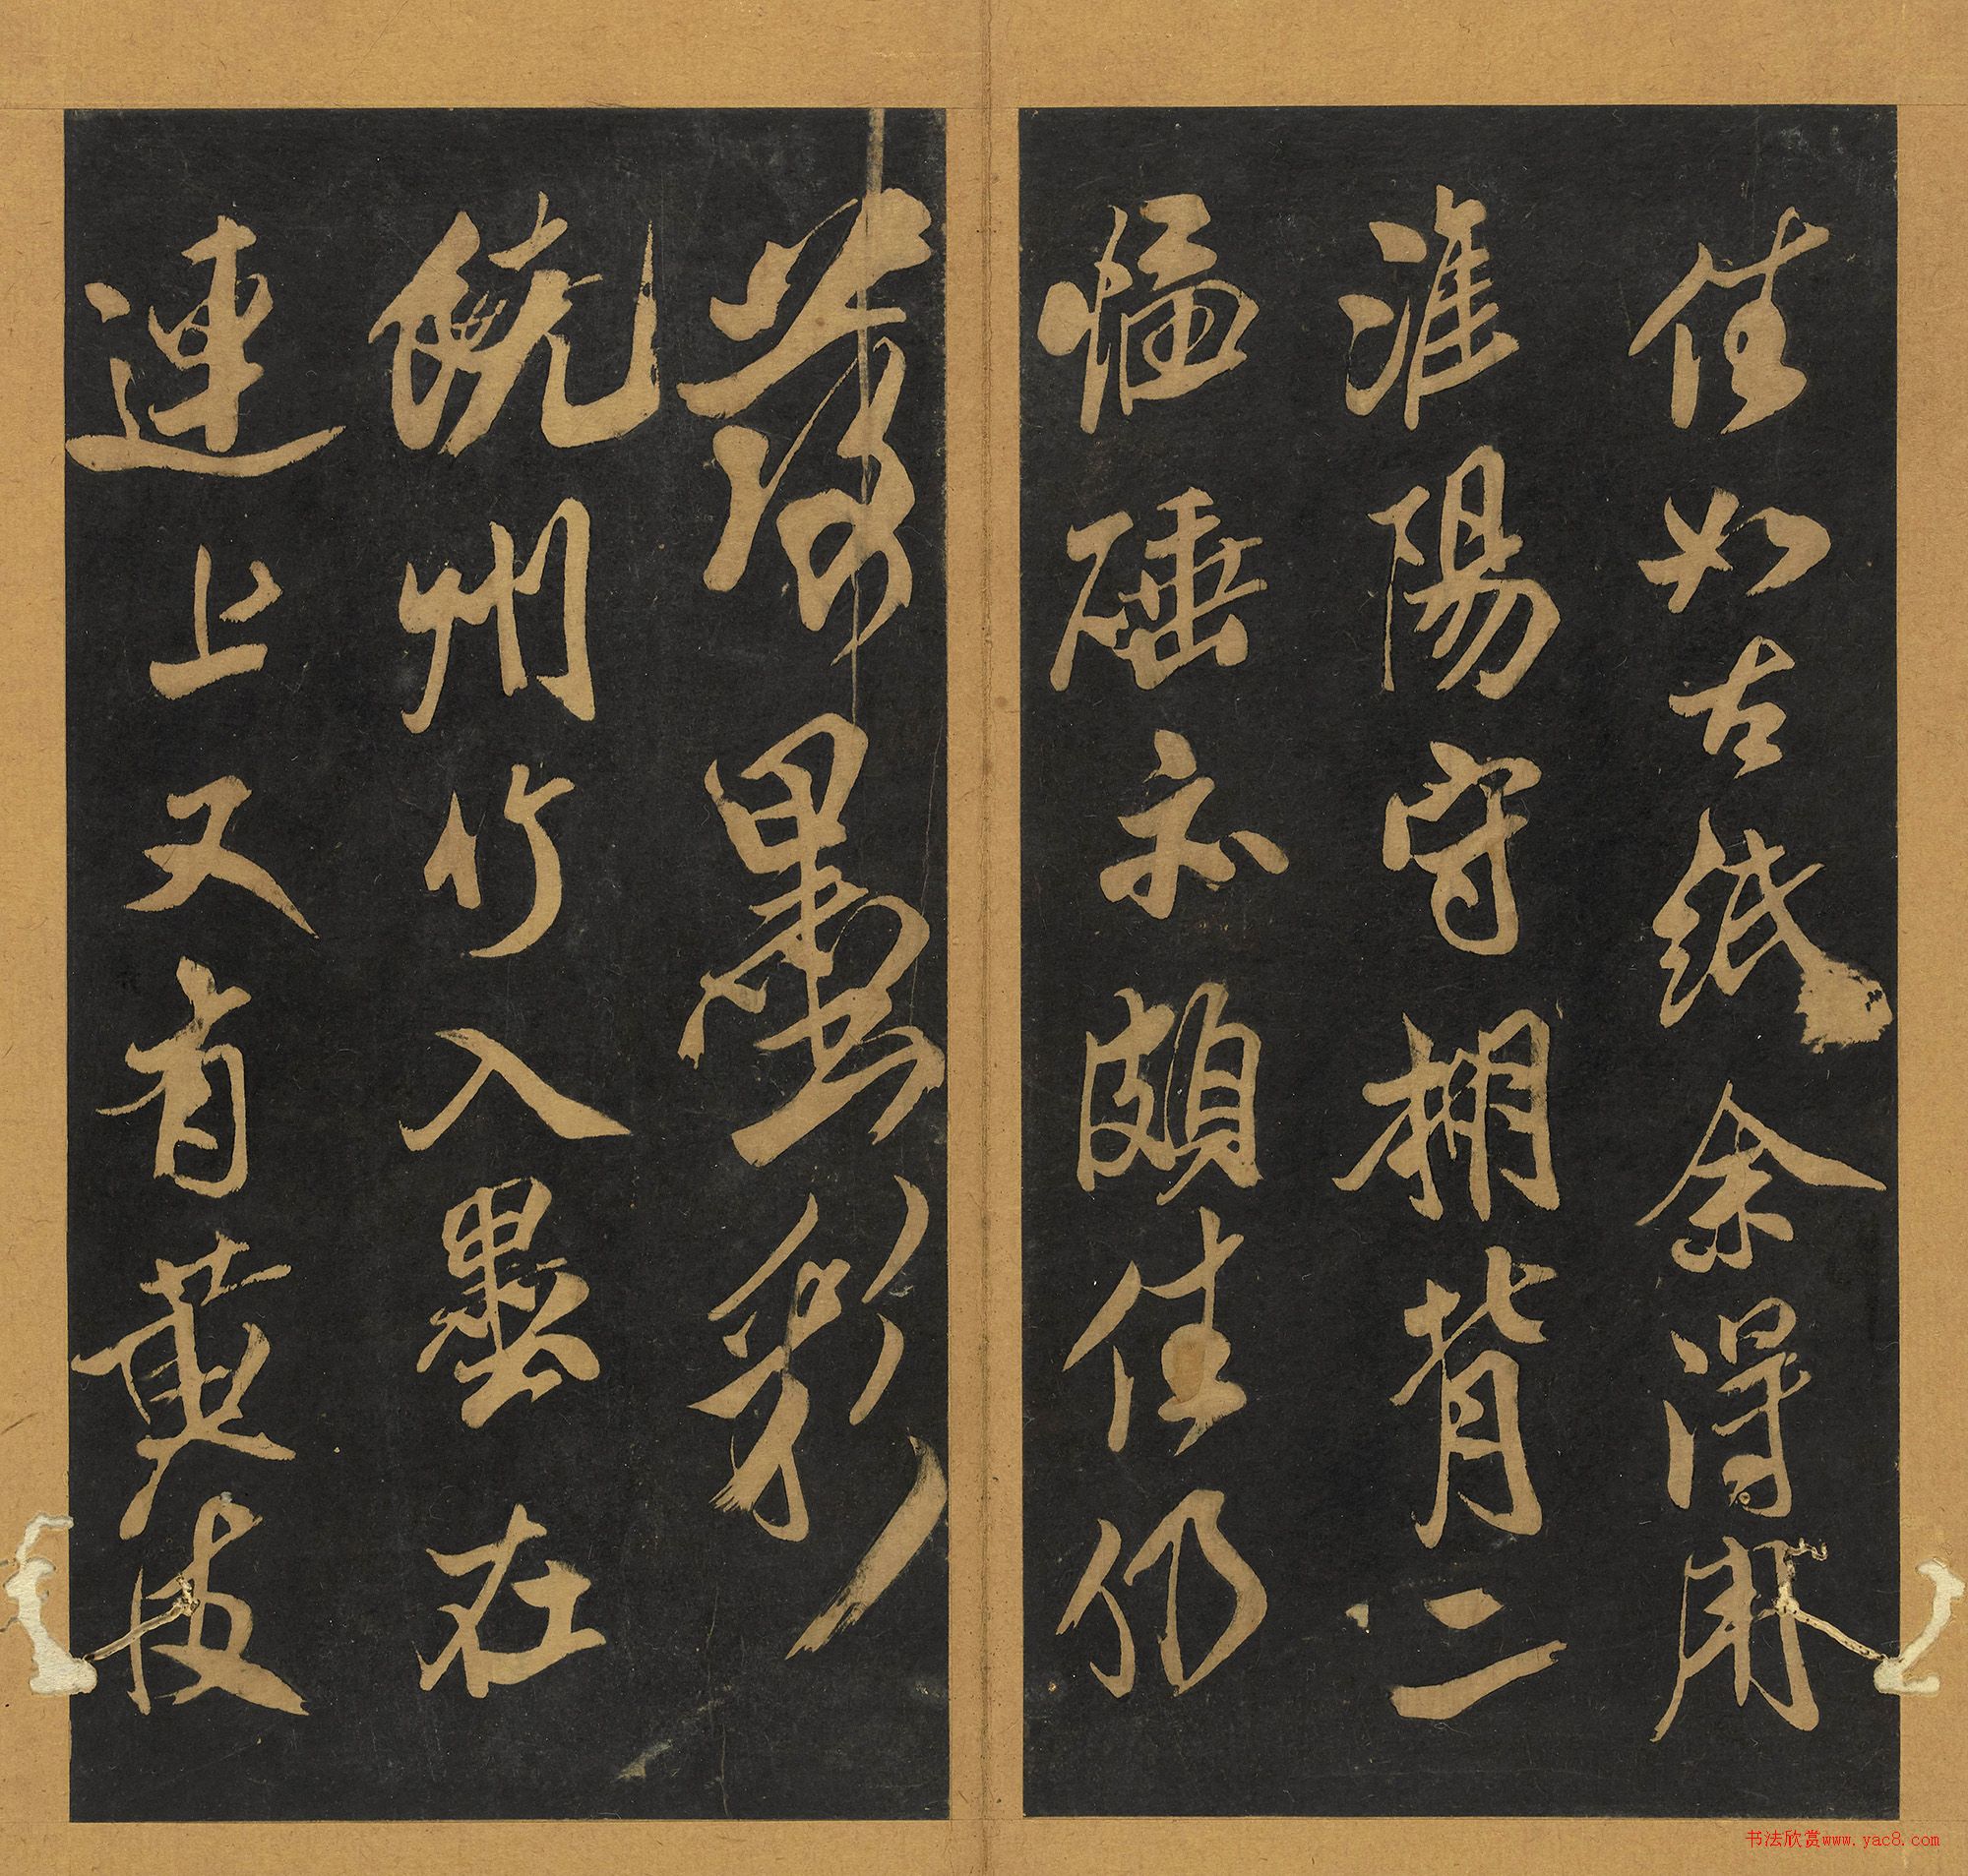 佳如古紙余得用
淮陽守棚背二
幅硾亦頗佳仍
發墨彩
饒州竹入墨在
連上又有黃皮
书法欣赏www.yac8.com